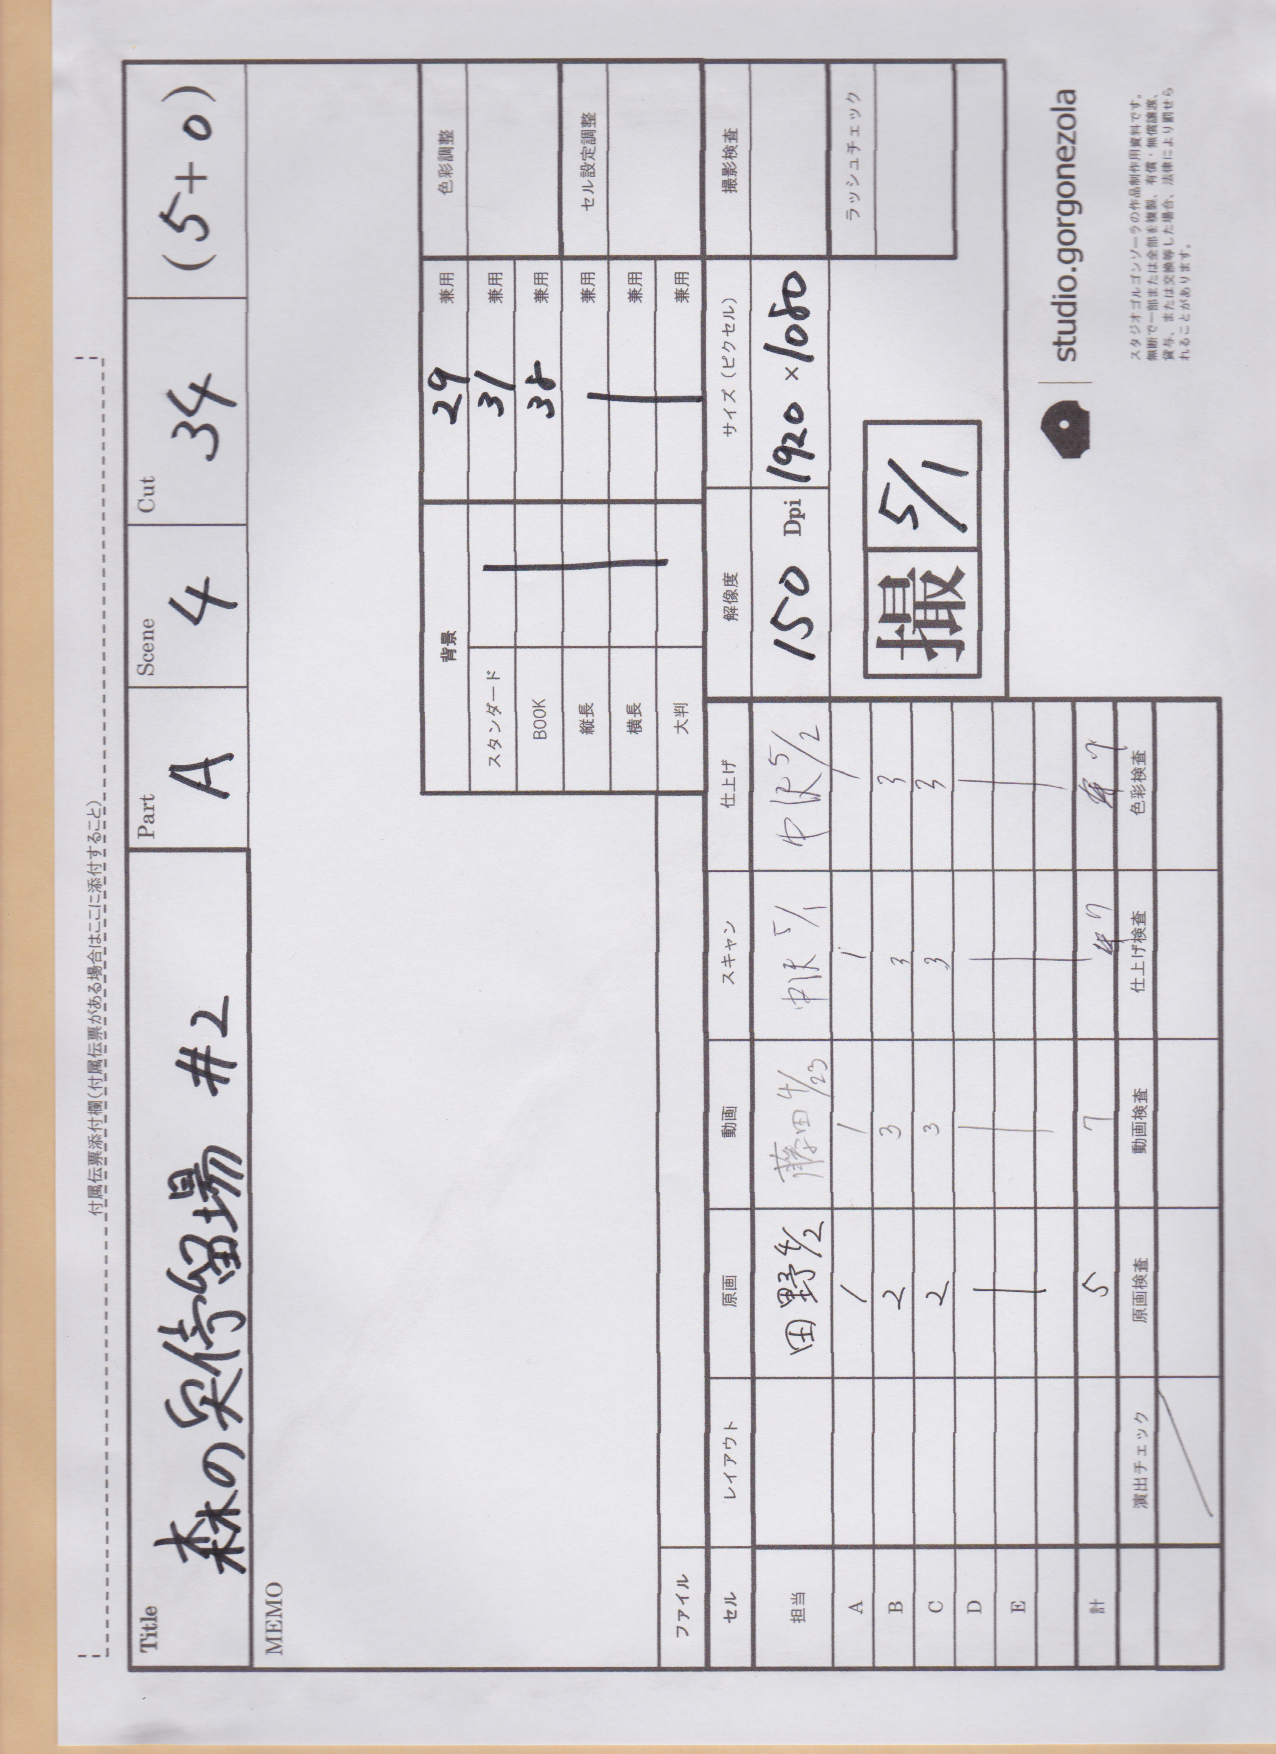 付属伝票添付欄(付属伝票がある場合はここに添付すること)
Title 森の安待留場 #2
Part A
Scene 4
Cut 34
(5+0)
MEMO
背景 29 兼用 色彩調整
スタンダード 31 兼用
BOOK 38 兼用
縦長 兼用 セル設定調整
横長 兼用
大判 兼用
ファイル
解像度 サイズ(ピクセル) 撮影検査
150 Dpi 1920×1080
ラッシュチェック
撮 5/1
セル レイアウト 原画 動画 スキャン 仕上げ
担当 田野 4/2 藤田 4/23 中沢 5/1 中沢 5/2
A 1 1 1 1
B 2 3 3 3
C 2 3 3 3
D
E
計 5 7 7 7
演出チェック 原画検査 動画検査 仕上げ検査 色彩検査
studio.gorgonezola
スタジオゴルゴンゾーラの作品制作用資料です。
無断で一部または全部を複製、有償・無償譲渡、
貸与、または交換等した場合、法律により罰せら
れることがあります。